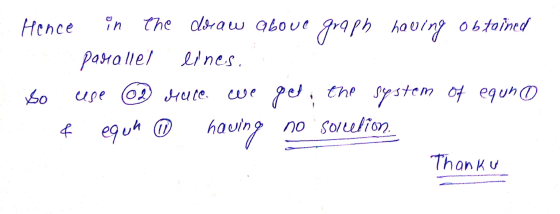 Hence in the draw above graph having obtained
parallel lines.
So use 02 rule we get, the system of equn ①
& equn ⑪ having no solution.
Thanku